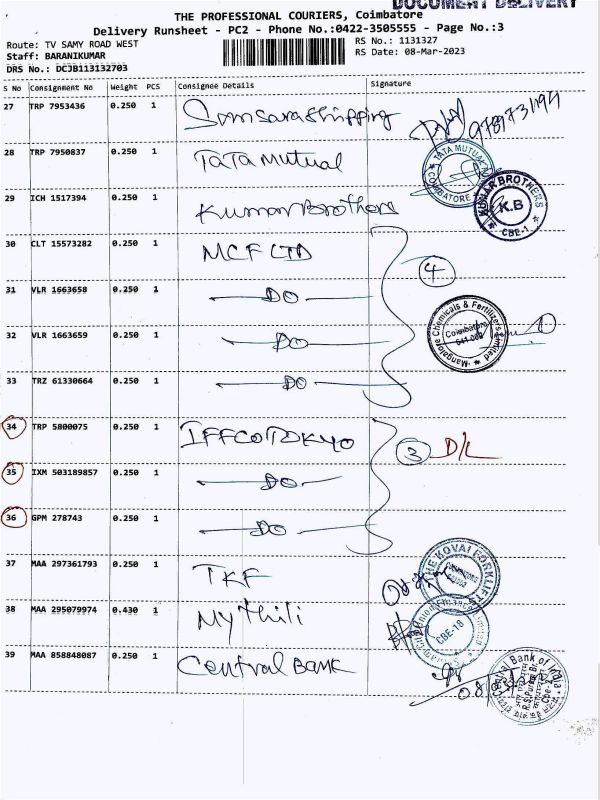 DOCUMENT DELIVERY
THE PROFESSIONAL COURIERS, Coimbatore
Delivery Runsheet - PC2 - Phone No.:0422-3505555 - Page No.:3
Route: TV SAMY ROAD WEST
RS No.: 1131327
Staff: BARANIKUMAR
RS Date: 08-Mar-2023
DRS No.: DCJB113132703
S No Consignment No Weight PCS Consignee Details Signature
27 TRP 7953436 0.250 1 Samsara Shipping
28 TRP 7950837 0.250 1 TATA Mutual
TATA MUTUAL COIMBATORE
29 ICH 1517394 0.250 1 Kumar Brothers
KUMAR BROTHERS K.B CBE-1
30 CLT 15573282 0.250 1 MCF LTD
4
31 VLR 1663658 0.250 1 DO
32 VLR 1663659 0.250 1 DO
Mangalore Chemicals & Fertilizers Limited Coimbatore
33 TRZ 61330664 0.250 1 DO
34 TRP 5800075 0.250 1 IFFCO TOKYO
3 D/L
35 IXM 503189857 0.250 1 DO
36 GPM 278743 0.250 1 DO
37 MAA 297361793 0.250 1 TKF
THE KOVAI FORKLIFT
38 MAA 295079974 0.430 1 Mythili
CBE-18
39 MAA 858848087 0.250 1 Central BANK
Central Bank of India